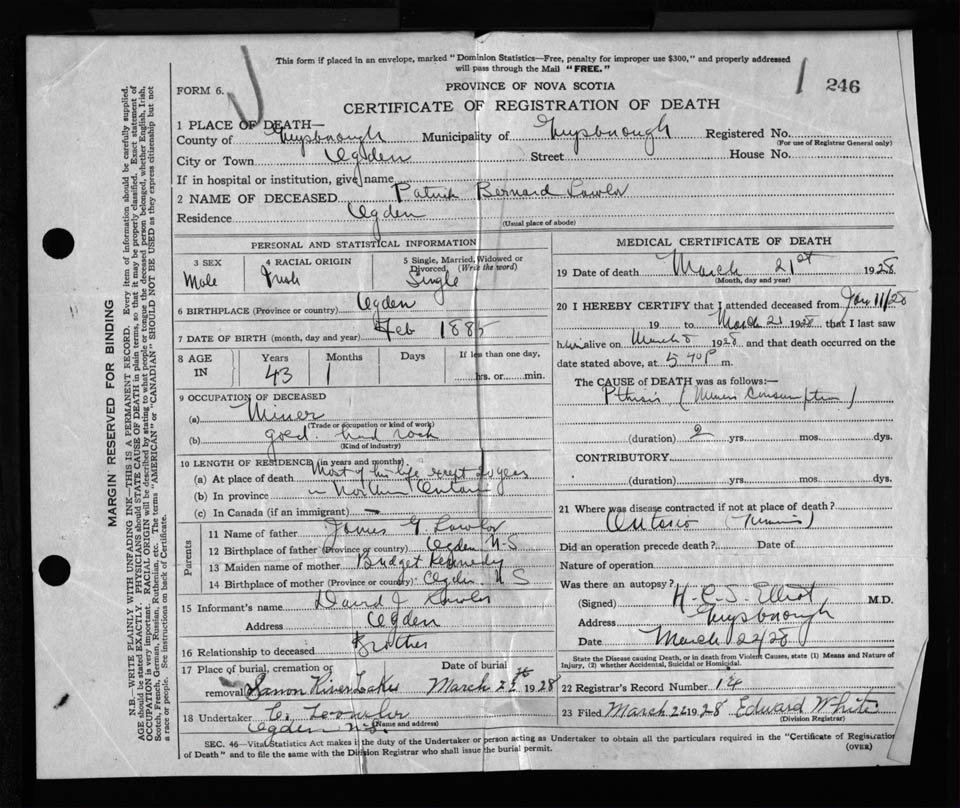 This form if placed in an envelope, marked "Dominion Statistics—Free, penalty for improper use $300," and properly addressed
will pass through the Mail "FREE."
1 246
FORM 6.
PROVINCE OF NOVA SCOTIA
CERTIFICATE OF REGISTRATION OF DEATH
1 PLACE OF DEATH—
County of Guysborough Municipality of Guysborough Registered No.
(For use of Registrar General only)
City or Town Ogden Street House No.
If in hospital or institution, give name
2 NAME OF DECEASED Patrick Bernard Lawlor
Residence Ogden
(Usual place of abode)
PERSONAL AND STATISTICAL INFORMATION
3 SEX
Male
4 RACIAL ORIGIN
Irish
5 Single, Married, Widowed or
Divorced, (Write the word)
Single
6 BIRTHPLACE (Province or country) Ogden
7 DATE OF BIRTH (month, day and year) Feb 1885
8 AGE IN
Years
43
Months
1
Days
If less than one day,
hrs. or min.
9 OCCUPATION OF DECEASED
(a) Miner
(Trade or occupation or kind of work)
(b) gold hard rock
(Kind of industry)
10 LENGTH OF RESIDENCE (in years and months)
(a) At place of death Most of his life exept 20 years
(b) In province in Northern Ontario
(c) In Canada (if an immigrant) —
Parents
11 Name of father James G Lawlor
12 Birthplace of father (Province or country) Ogden N-S
13 Maiden name of mother Bridget Kennedy
14 Birthplace of mother (Province or country) Ogden N S
15 Informant's name David J Lawlor
Address Ogden
16 Relationship to deceased Brother
17 Place of burial, cremation or
removal Samon River Lake
Date of burial
March 1928
18 Undertaker
(Name and address)
Ogden N.S.
MEDICAL CERTIFICATE OF DEATH
19 Date of death March 21st 1928
(Month, day and year)
20 I HEREBY CERTIFY that I attended deceased from Jan 11/28
19 to March 21 1928 that I last saw
him alive on March 8 1928 and that death occurred on the
date stated above, at 5 40 P m.
The CAUSE of DEATH was as follows:—
Pthisis (Miners Consumption)
(duration) 2 yrs. mos. dys.
CONTRIBUTORY
(duration) yrs. mos. dys.
21 Where was disease contracted if not at place of death?
Ontario (Timmins)
Did an operation precede death? Date of
Nature of operation
Was there an autopsy?
(Signed) H. C. S. Elliot M.D.
Address Guysborough
Date March 22/28
State the Disease causing Death, or in death from Violent Causes, state (1) Means and Nature of
Injury, (2) whether Accidental, Suicidal or Homicidal.
22 Registrar's Record Number 14
23 Filed March 1928 Edward White
(Division Registrar)
SEC. 46—Vital Statistics Act makes it the duty of the Undertaker or person acting as Undertaker to obtain all the particulars required in the "Certificate of Registration
of Death" and to file the same with the Division Registrar who shall issue the burial permit.
(OVER)
MARGIN RESERVED FOR BINDING
N.B.—WRITE PLAINLY WITH UNFADING INK—THIS IS A PERMANENT RECORD. Every item of information should be carefully supplied.
AGE should be stated EXACTLY. PHYSICIANS should state CAUSE OF DEATH in plain terms, so that it may be properly classified. Exact statement of
OCCUPATION is very important. RACIAL ORIGIN will be described by stating to what people or tongue the deceased person belonged, whether English, Irish,
Scotch, French, German, Russian, Ruthenian, etc. The terms "AMERICAN" or "CANADIAN" SHOULD NOT BE USED as they express citizenship but not
a race or people. See instructions on back of Certificate.